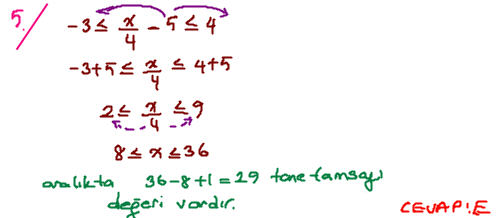 5.
-3 ≤ x/4 - 5 ≤ 4
-3+5 ≤ x/4 ≤ 4+5
2 ≤ x/4 ≤ 9
8 ≤ x ≤ 36
aralıkta 36-8+1=29 tane tamsayı
değeri vardır.
CEVAP:E